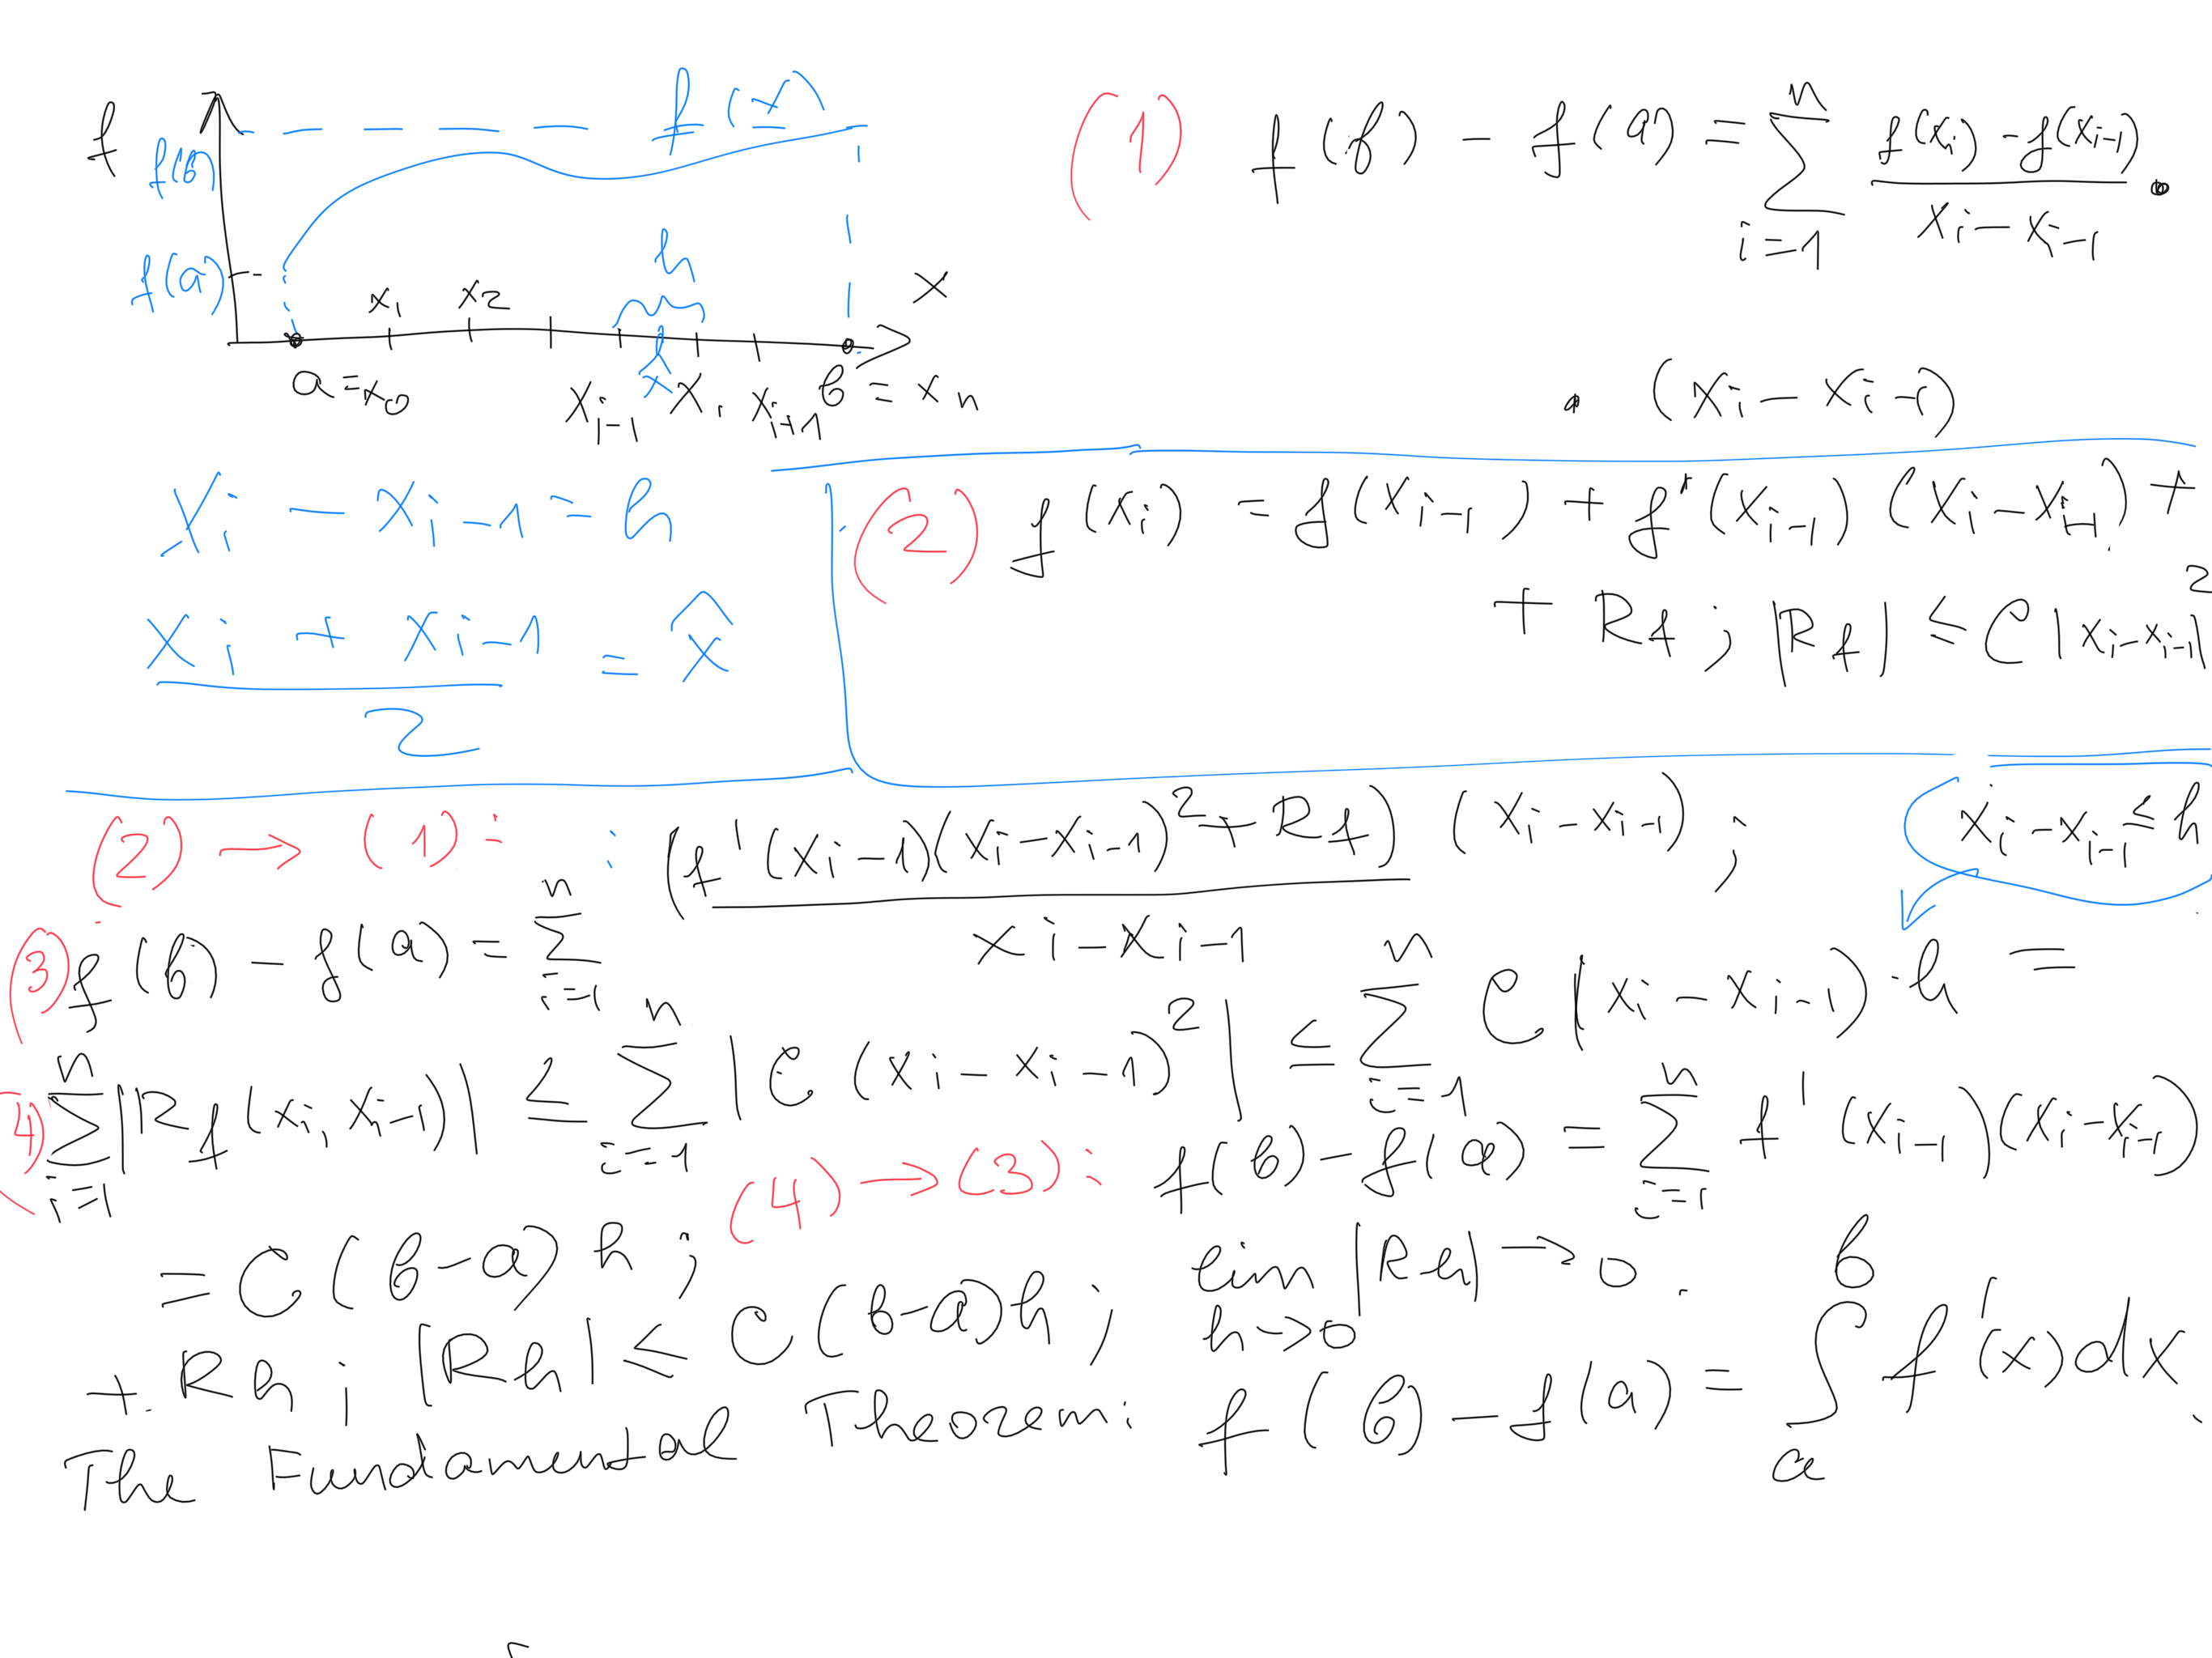 f
f(x)
f(b)
f(a)
h
x
x₁ x₂
x̂
a = x₀ x_{i-1} x_i x_{i+1} b = x_n
(1) f(b) - f(a) = \sum_{i=1}^{n} \frac{f(x_i) - f(x_{i-1})}{x_i - x_{i-1}} ·
· (x_i - x_{i-1})
x_i - x_{i-1} = h
\frac{x_i + x_{i-1}}{2} = \hat{x}
(2) f(x_i) = f(x_{i-1}) + f'(x_{i-1}) (x_i - x_{i-1}) +
+ R_f ; |R_f| ≤ C |x_i - x_{i-1}|^2
(2) → (1) :
(3) f(b) - f(a) = \sum_{i=1}^{n} \frac{(f'(x_{i-1})(x_i - x_{i-1})^2 + R_f)}{x_i - x_{i-1}} (x_i - x_{i-1}) ;
x_i - x_{i-1} ≤ h
(4) \sum_{i=1}^{n} |R_f(x_i, x_{i-1})| ≤ \sum_{i=1}^{n} |C (x_i - x_{i-1})^2| ≤ \sum_{i=1}^{n} C (x_i - x_{i-1}) · h =
= C (b-a) h ;
(4) → (3) : f(b) - f(a) = \sum_{i=1}^{n} f'(x_{i-1})(x_i - x_{i-1})
+ R_h ; |R_h| ≤ C (b-a) h ; \lim_{h→0} |R_h| → 0.
The Fundamental Theorem: f(b) - f(a) = \int_a^b f'(x) dx.